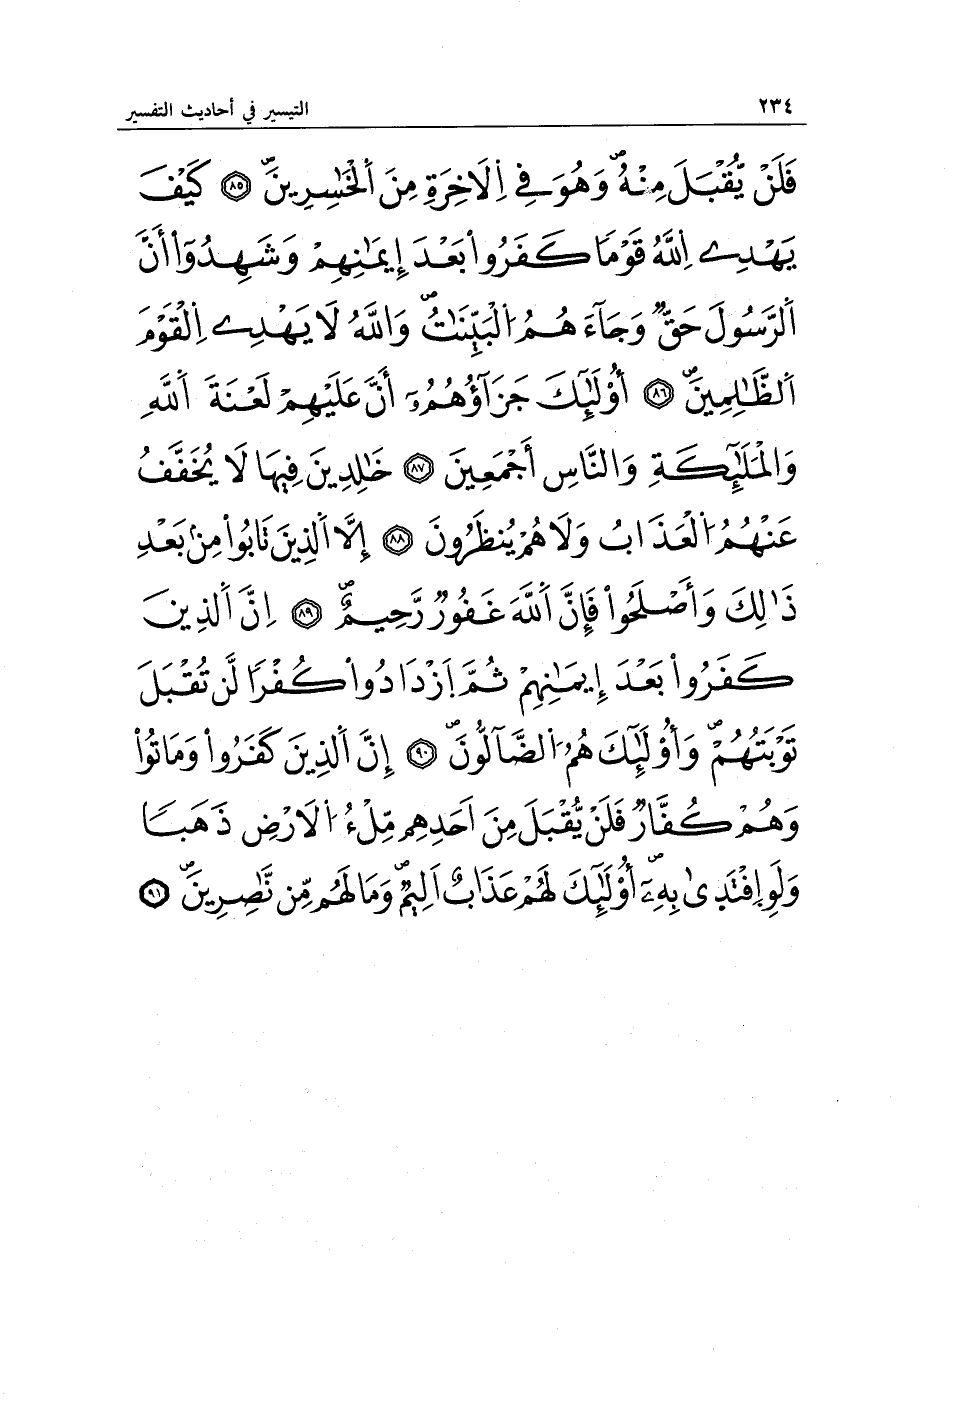 ٢٣٤ التيسير في أحاديث التفسير
فَلَنْ يُّقْبَلَ مِنْهُ وَهُوَ فِي اِلَاخِرَةِ مِنَ اَلْخَٰسِرِينَ ٨٥ كَيْفَ
يَهْدِے اِللَّهُ قَوْمًا كَفَرُواْ بَعْدَ إِيمَٰنِهِمْ وَشَهِدُوٓاْ أَنَّ
اَلرَّسُولَ حَقٌّ وَجَآءَ هُمُ اُلْبَيِّنَٰتُ وَاللَّهُ لَا يَهْدِے اِلْقَوْمَ
اَلظَّٰلِمِينَ ٨٦ أُوْلَٰٓئِكَ جَزَآؤُهُمُۥٓ أَنَّ عَلَيْهِمْ لَعْنَةَ اَللَّهِ
وَالْمَلَٰٓئِكَةِ وَالنَّاسِ أَجْمَعِينَ ٨٧ خَٰلِدِينَ فِيهَا لَا يُخَفَّفُ
عَنْهُمُ اُلْعَذَابُ وَلَا هُمْ يُنظَرُونَ ٨٨ إِلَّا اَلذِينَ تَابُواْ مِنۢ بَعْدِ
ذَٰلِكَ وَأَصْلَحُواْ فَإِنَّ اَللَّهَ غَفُورٌ رَّحِيمٌ ٨٩ اِنَّ اَلذِينَ
كَفَرُواْ بَعْدَ إِيمَٰنِهِمْ ثُمَّ اَزْدَادُواْ كُفْرًا لَّن تُقْبَلَ
تَوْبَتُهُمْ وَأُوْلَٰٓئِكَ هُمُ اُلضَّآلُّونَ ٩٠ إِنَّ اَلذِينَ كَفَرُواْ وَمَاتُواْ
وَهُمْ كُفَّارٌ فَلَنْ يُّقْبَلَ مِنَ اَحَدِهِم مِّلْءُ اُلَارْضِ ذَهَبًا
وَلَوِ اِفْتَدٰىٰ بِهِۦٓ أُوْلَٰٓئِكَ لَهُمْ عَذَابٌ اَلِيمٌ وَمَا لَهُم مِّن نَّٰصِرِينَ ٩١